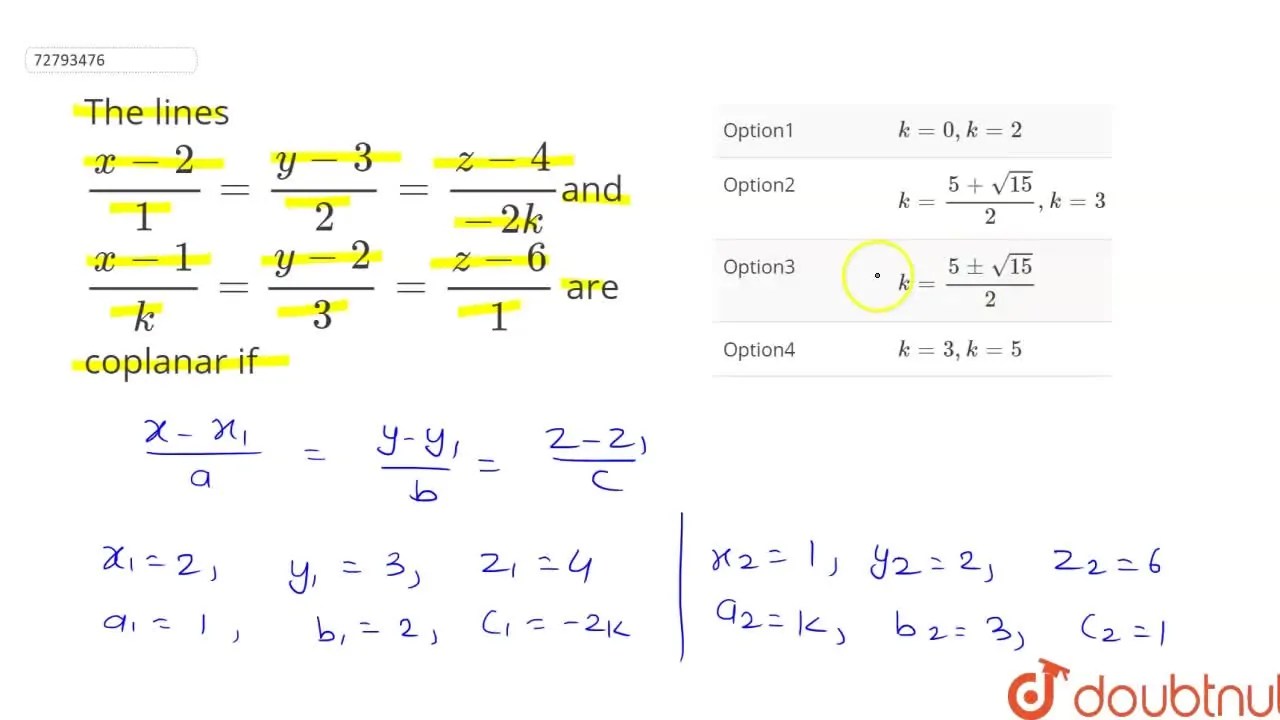 72793476
The lines
x − 2 / 1 = y − 3 / 2 = z − 4 / −2k and
x − 1 / k = y − 2 / 3 = z − 6 / 1 are
coplanar if
Option1 k = 0, k = 2
Option2 k = 5 + √15 / 2, k = 3
Option3 k = 5 ± √15 / 2
Option4 k = 3, k = 5
x − x₁ / a = y − y₁ / b = z − z₁ / c
x₁ = 2, y₁ = 3, z₁ = 4
a₁ = 1, b₁ = 2, c₁ = −2k
x₂ = 1, y₂ = 2, z₂ = 6
a₂ = k, b₂ = 3, c₂ = 1
doubtnut